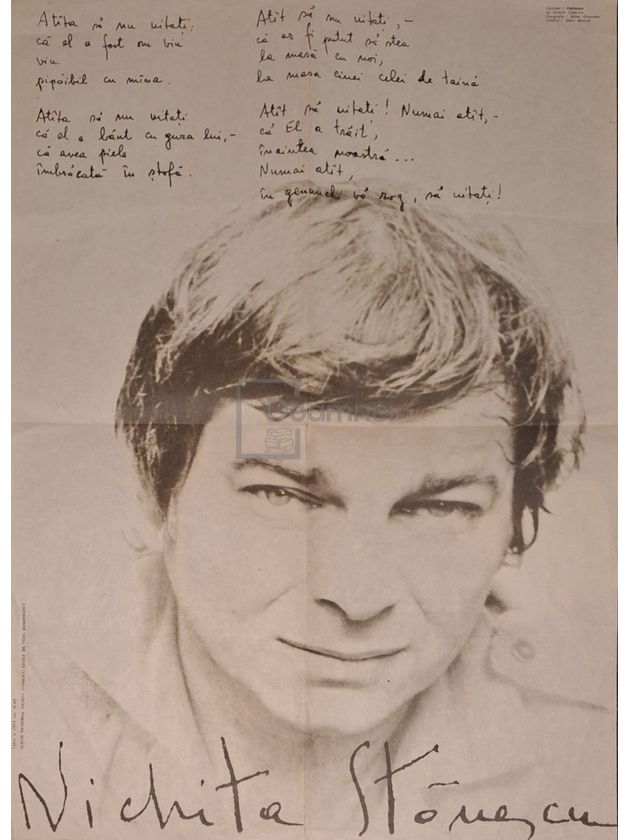 Atîta să nu uitați:
că el a fost om viu
viu
pipăibil cu mîna.
Atîta să nu uitați
că el a băut cu gura lui,-
că avea piele
îmbrăcată în ștofă.
Atît să nu uitați,-
că ar fi putut să stea
la masă cu noi,
la masa cinei celei de taină
Atît să uitați! Numai atît,-
că El a trăit,
înaintea noastră...
Numai atît,
în genunchi vă rog, să uitați!
ALBUM MEMORIAL NICHITA STĂNESCU EDITAT DE VIAȚA ROMÂNEASCĂ
Nichita Stănescu